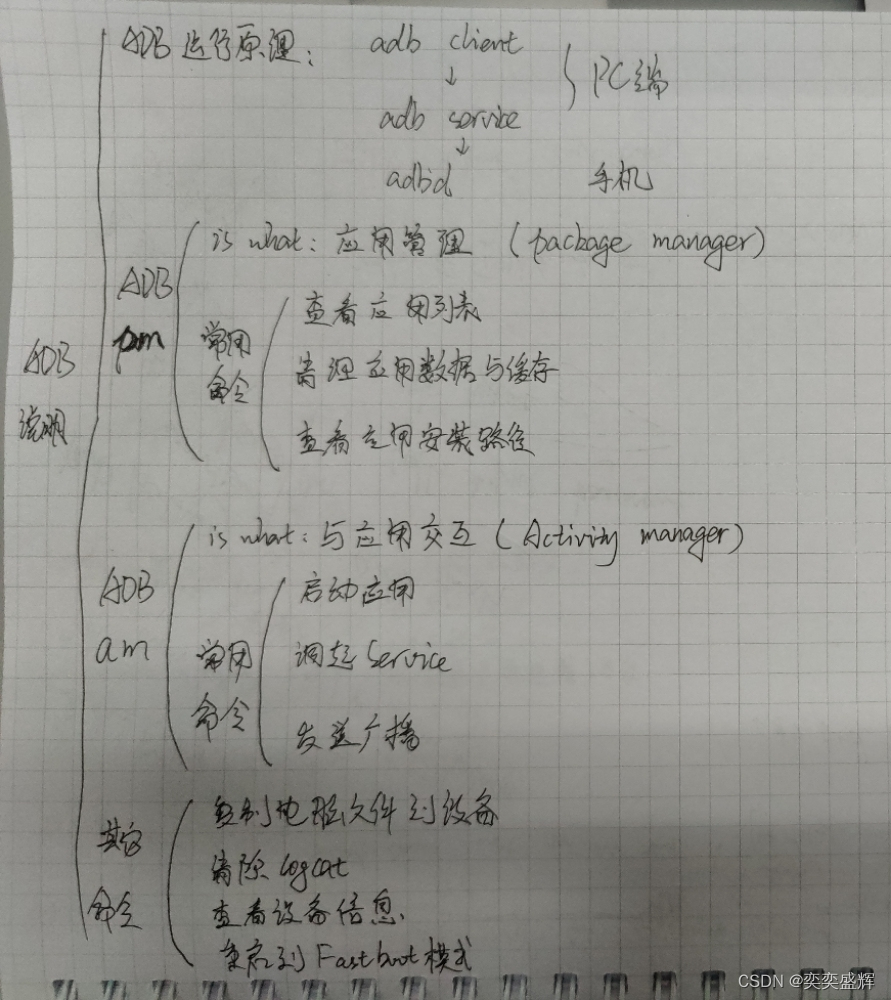 ADB运行原理: adb client
↓
adb service
PC端
↓
adbd 手机
ADB
说明
ADB
pm
is what: 应用管理 (package manager)
常用
命令
查看应用列表
清理应用数据与缓存
查看应用安装路径
ADB
am
is what: 与应用交互 (Activity manager)
常用
命令
启动应用
调起Service
发送广播
其它
命令
复制电脑文件到设备
清除logcat
查看设备信息.
重启到Fastboot模式
CSDN @奕奕盛辉